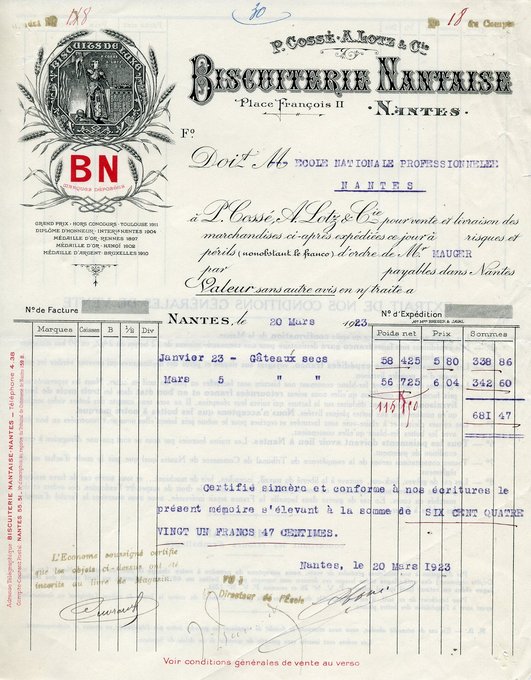 18
30
No 18 du Compte
BISCUITS DE LUXE
P. Cossé. A. Lotz & Cie
BISCUITERIE NANTAISE
Place François II
NANTES.
BN
MARQUES DÉPOSÉES
GRAND PRIX - HORS CONCOURS - TOULOUSE 1911
DIPLÔME D'HONNEUR - INTERle NANTES 1904
MÉDAILLE D'OR - RENNES 1897
MÉDAILLE D'OR - HANOÏ 1902
MÉDAILLE D'ARGENT - BRUXELLES 1910
Fo
Doit M ECOLE NATIONALE PROFESSIONNELEE
NANTES
à P. Cossé, A. Lotz & Cie pour vente et livraison des
marchandises ci-après expédiées ce jour à risques et
périls (nonobstant le franco) d'ordre de Mr MAUGER
par payables dans Nantes
Valeur sans autre avis en n/ traite a
No de Facture
No d'Expédition
NANTES, le 20 Mars 1923
Marques Caisses B ½ Div
Poids net Prix Sommes
Janvier 23 - Gâteaux secs 58 425 5 80 338 86
Mars 5 " " 56 725 6 04 342 60
115 150
681 47
Certifié sincère et conforme à nos écritures le
présent mémoire s'élevant à la somme de SIX CENT QUATRE
VINGT UN FRANCS 47 CENTIMES.
Nantes, le 20 Mars 1923
L'Econome soussigné certifie
que les objets ci-dessus ont été
inscrits au livre de Magasin.
VU :
Le Directeur de l'École
Adresse Télégraphique BISCUITERIE NANTAISE-NANTES - Téléphone 4.38
Compte Courant Postal NANTES 55.51
Voir conditions générales de vente au verso